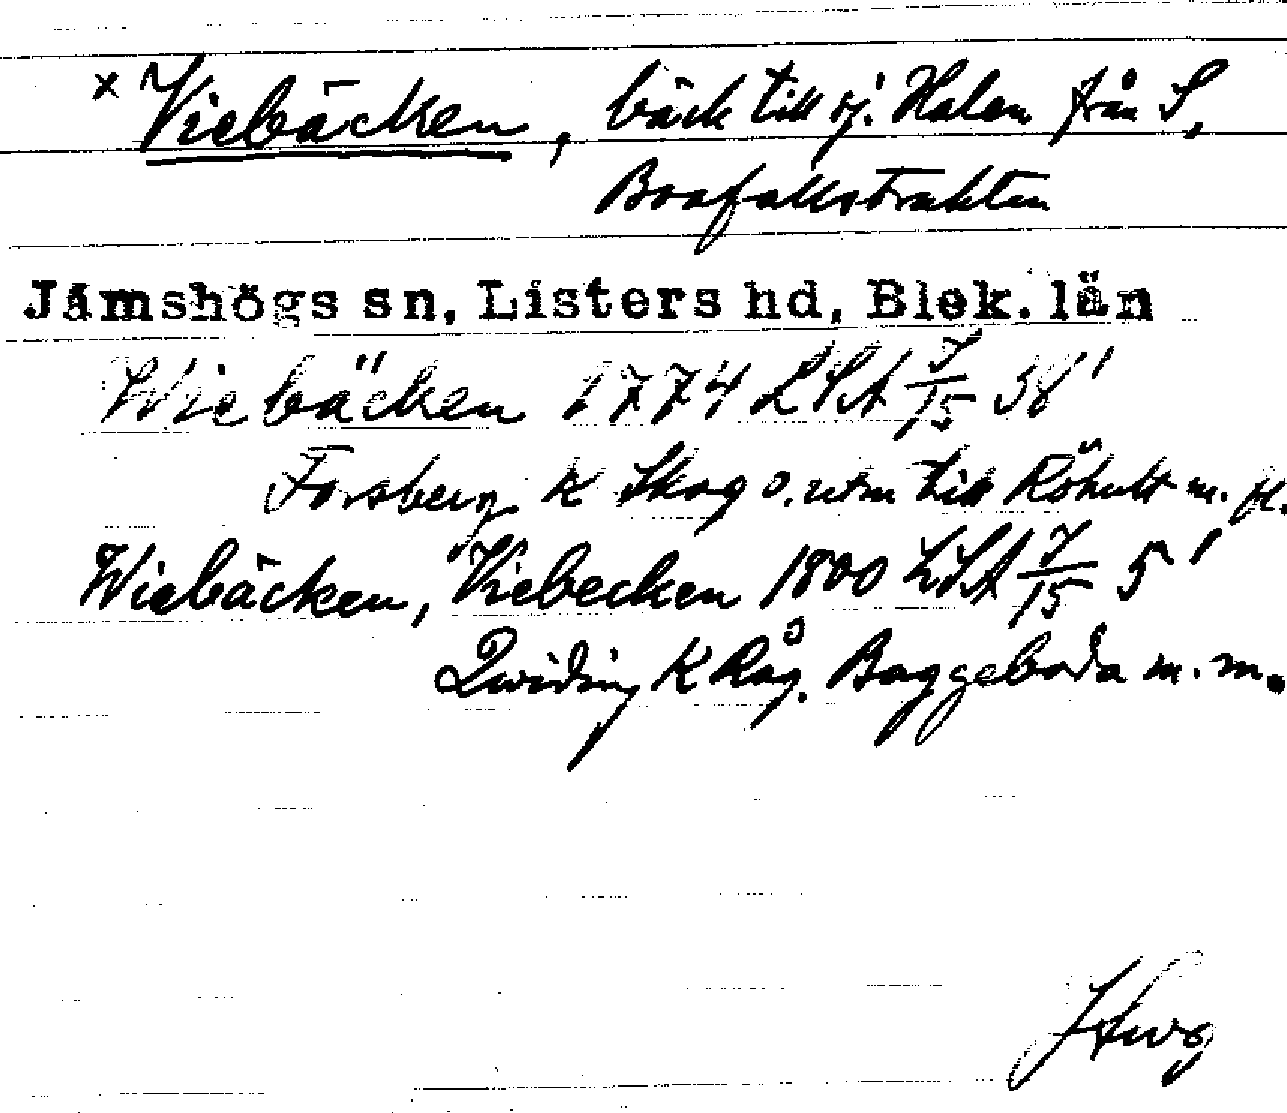 × Viebäcken, bäck till sj. Halen från S,
Boafallstrakten
Jämshögs sn, Listers hd, Blek. län
Wiebäcken 1774 LSA J/15 38'
Forsberg K Skog o. utm till Röhult m. fl.
Wiebäcken, Viebecken 1800 LSA J/15 5'
Qwiding K Råg. Baggeboda m. m.